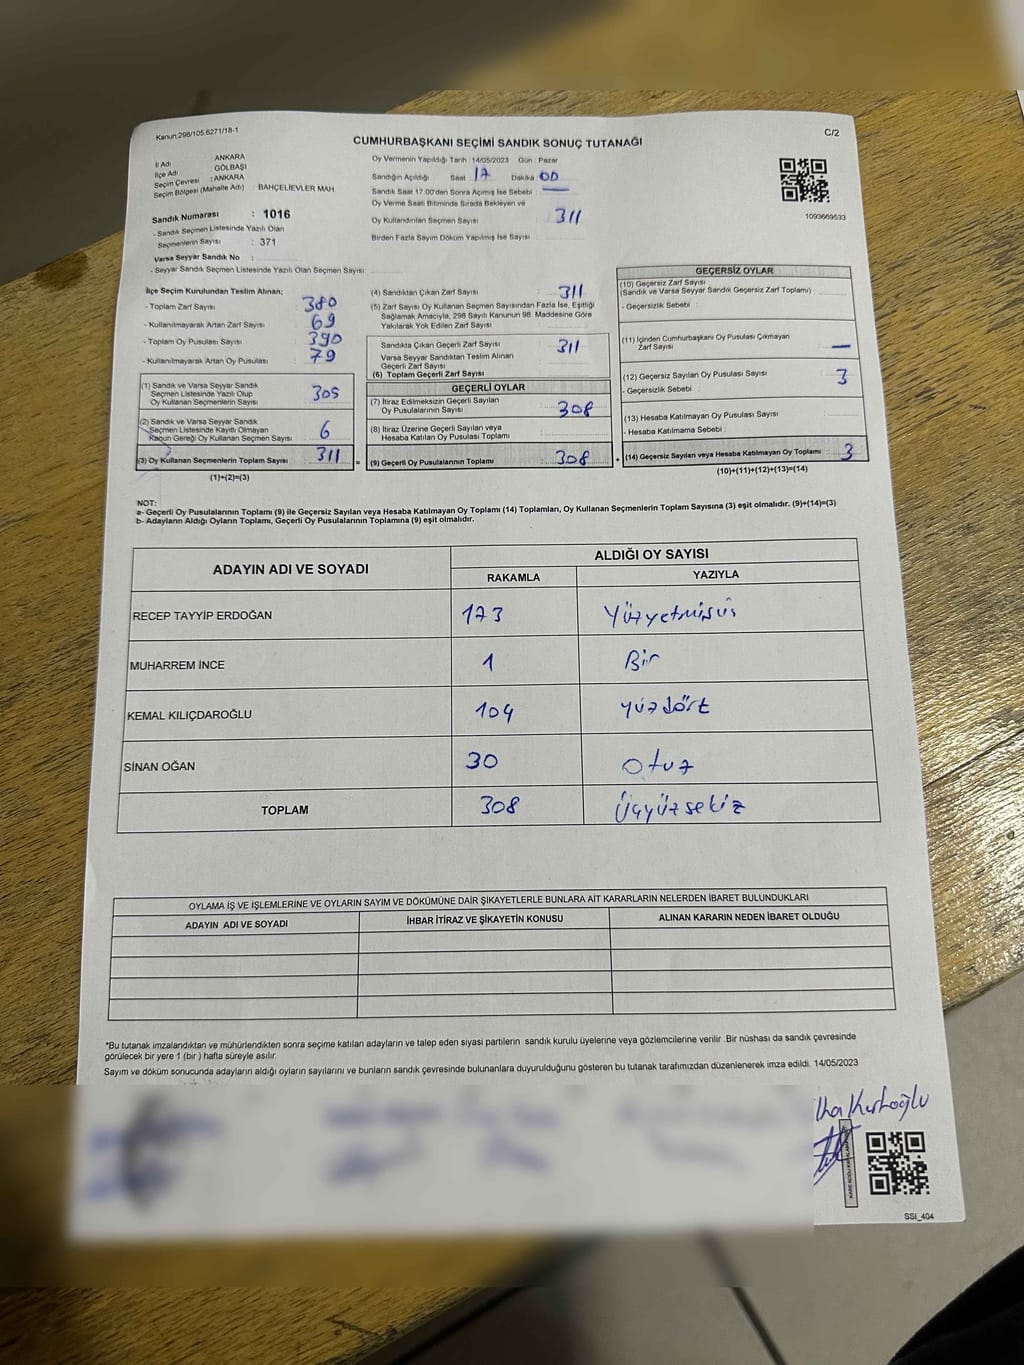 Kanun:298/105,6271/18-1
C/2
CUMHURBAŞKANI SEÇİMİ SANDIK SONUÇ TUTANAĞI
İl Adı : ANKARA
İlçe Adı : GÖLBAŞI
Seçim Çevresi : ANKARA
Seçim Bölgesi (Mahalle Adı) : BAHÇELİEVLER MAH.
Sandık Numarası : 1016
- Sandık Seçmen Listesinde Yazılı Olan
Seçmenlerin Sayısı : 371
Varsa Seyyar Sandık No :
- Seyyar Sandık Seçmen Listesinde Yazılı Olan Seçmen Sayısı:
Oy Vermenin Yapıldığı Tarih :14/05/2023 Gün : Pazar
Sandığın Açıldığı Saat 17 Dakika 00
Sandık Saat 17.00'den Sonra Açılmış İse Sebebi : —
Oy Verme Saati Bitiminde Sırada Bekleyen ve
Oy Kullandırılan Seçmen Sayısı 311
Birden Fazla Sayım Döküm Yapılmış İse Sayısı
1093669533
İlçe Seçim Kurulundan Teslim Alınan;
- Toplam Zarf Sayısı 380
- Kullanılmayarak Artan Zarf Sayısı 69
- Toplam Oy Pusulası Sayısı 390
- Kullanılmayarak Artan Oy Pusulası 79
(1) Sandık ve Varsa Seyyar Sandık
Seçmen Listesinde Yazılı Olup
Oy Kullanan Seçmenlerin Sayısı 305
(2) Sandık ve Varsa Seyyar Sandık
Seçmen Listesinde Kayıtlı Olmayan
Kanun Gereği Oy Kullanan Seçmen Sayısı 6
(3) Oy Kullanan Seçmenlerin Toplam Sayısı : 311 =
(1)+(2)=(3)
(4) Sandıktan Çıkan Zarf Sayısı 311
(5) Zarf Sayısı Oy Kullanan Seçmen Sayısından Fazla İse, Eşitliği
Sağlamak Amacıyla, 298 Sayılı Kanunun 98. Maddesine Göre
Yakılarak Yok Edilen Zarf Sayısı
Sandıkta Çıkan Geçerli Zarf Sayısı 311
Varsa Seyyar Sandıktan Teslim Alınan
Geçerli Zarf Sayısı
(6) Toplam Geçerli Zarf Sayısı
GEÇERLİ OYLAR
(7) İtiraz Edilmeksizin Geçerli Sayılan
Oy Pusulalarının Sayısı 308
(8) İtiraz Üzerine Geçerli Sayılan veya
Hesaba Katılan Oy Pusulası Toplamı
(9) Geçerli Oy Pusulalarının Toplamı : 308 +
GEÇERSİZ OYLAR
(10) Geçersiz Zarf Sayısı
(Sandık ve Varsa Seyyar Sandık Geçersiz Zarf Toplamı) :
- Geçersizlik Sebebi :
(11) İçinden Cumhurbaşkanı Oy Pusulası Çıkmayan
Zarf Sayısı —
(12) Geçersiz Sayılan Oy Pusulası Sayısı : 3
- Geçersizlik Sebebi :
(13) Hesaba Katılmayan Oy Pusulası Sayısı
- Hesaba Katılmama Sebebi :
(14) Geçersiz Sayılan veya Hesaba Katılmayan Oy Toplamı : 3
(10)+(11)+(12)+(13)=(14)
NOT:
a- Geçerli Oy Pusulalarının Toplamı (9) ile Geçersiz Sayılan veya Hesaba Katılmayan Oy Toplamı (14) Toplamları, Oy Kullanan Seçmenlerin Toplam Sayısına (3) eşit olmalıdır. (9)+(14)=(3)
b- Adayların Aldığı Oyların Toplamı, Geçerli Oy Pusulalarının Toplamına (9) eşit olmalıdır.
ADAYIN ADI VE SOYADI ALDIĞI OY SAYISI
RAKAMLA YAZIYLA
RECEP TAYYİP ERDOĞAN 173 Yüzyetmişüş
MUHARREM İNCE 1 Bir
KEMAL KILIÇDAROĞLU 104 yüzdört
SİNAN OĞAN 30 Otuz
TOPLAM 308 Üçyüzsekiz
OYLAMA İŞ VE İŞLEMLERİNE VE OYLARIN SAYIM VE DÖKÜMÜNE DAİR ŞİKAYETLERLE BUNLARA AİT KARARLARIN NELERDEN İBARET BULUNDUKLARI
ADAYIN ADI VE SOYADI İHBAR İTİRAZ VE ŞİKAYETİN KONUSU ALINAN KARARIN NEDEN İBARET OLDUĞU
*Bu tutanak imzalandıktan ve mühürlendikten sonra seçime katılan adayların ve talep eden siyasi partilerin sandık kurulu üyelerine veya gözlemcilerine verilir .Bir nüshası da sandık çevresinde
görülecek bir yere 1 (bir ) hafta süreyle asılır.
Sayım ve döküm sonucunda adayların aldığı oyların sayılarını ve bunların sandık çevresinde bulunanlara duyurulduğunu gösteren bu tutanak tarafımızdan düzenlenerek imza edildi. 14/05/2023
SSI_404